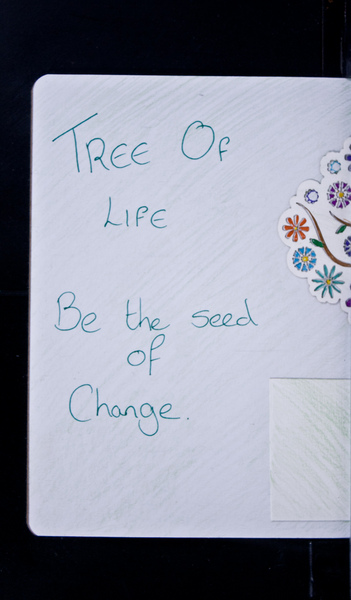 TREE OF
LIFE
Be the seed
of
Change.